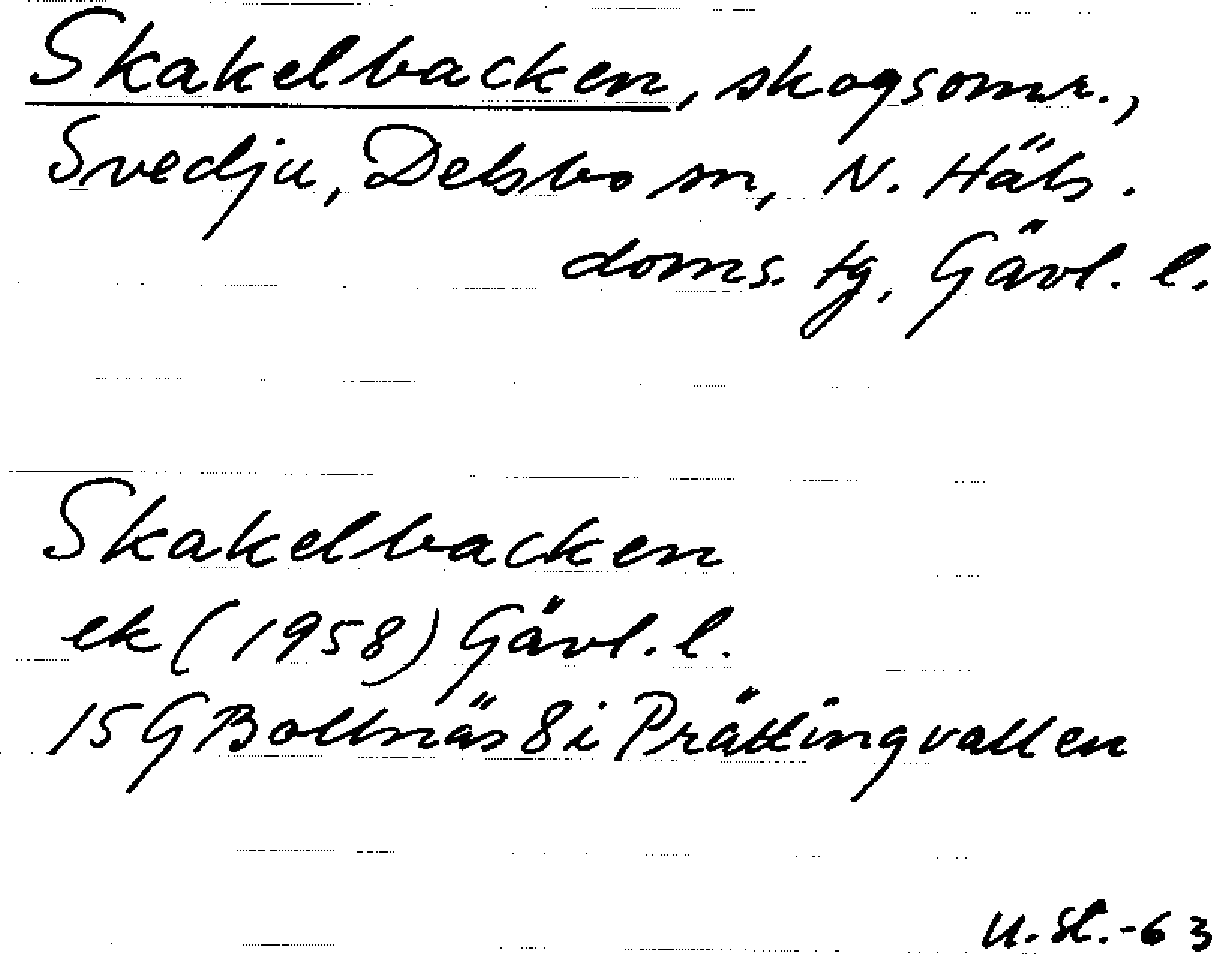 Skakelbacken, skogsomr.,
Svedju, Delsbo sn, N. Häls.
doms. tg, Gävl. l.
Skakelbacken
ek (1958) Gävl. l.
15 G Bollnäs 8 i Prättingvallen
U. St. -63